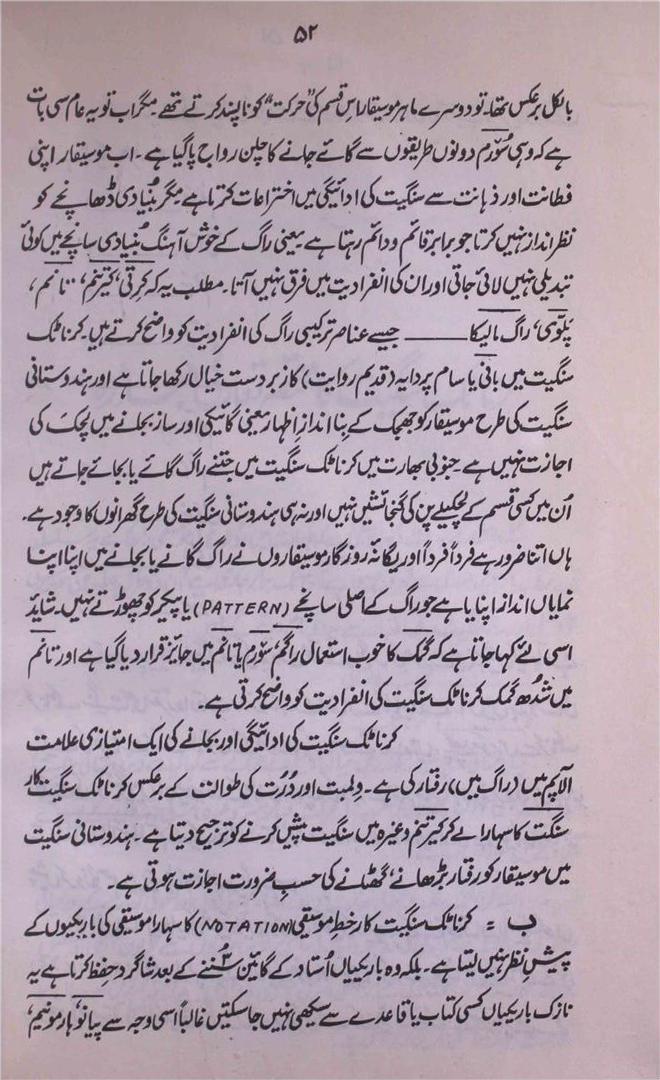 ۵۲
بالکل برعکس تھا۔ تو دوسرے ماہر موسیقار اس قسم کی ”حرکت“ کو ناپسند کرتے تھے۔ مگر اب تو یہ عام سی بات
ہے کہ وہی سُورَم دونوں طریقوں سے گائے جانے کا چلن رواج پا گیا ہے۔ اب موسیقار اپنی
فطانت اور ذہانت سے سنگیت کی ادائیگی میں اختراعات کرتا ہے مگر بُنیادی ڈھانچے کو
نظر انداز نہیں کرتا جو برابر قائم و دائم رہتا ہے یعنی راگ کے خوش آہنگ بُنیادی سانچے میں کوئی
تبدیلی نہیں لائی جاتی اور ان کی انفرادیت میں فرق نہیں آتا۔ مطلب یہ کہ کرتی، کیرتنم، تانم،
پلّوی، راگ مالیکا ــــــــ جیسے عناصر ترکیبی راگ کی انفرادیت کو واضح کرتے ہیں۔ کرناٹک
سنگیت میں بانی یا سام پردایہ (قدیم روایت) کا زبردست خیال رکھا جاتا ہے اور ہندوستانی
سنگیت کی طرح موسیقار کو جھجک کے بِنا اندازِ اظہار یعنی گائیکی اور ساز بجانے میں لچک کی
اجازت نہیں ہے۔ جنوبی بھارت میں کرناٹک سنگیت میں جتنے راگ گائے یا بجائے جاتے ہیں
اُن میں کسی قسم کے لچکیلے پن کی گنجائشیں نہیں اور نہ ہی ہندوستانی سنگیت کی طرح گھرانوں کا وجود ہے۔
ہاں اتنا ضرور ہے فرداً فرداً اور یگانۂ روزگار موسیقاروں نے راگ گانے یا بجانے میں اپنا اپنا
نمایاں انداز اپنایا ہے جو راگ کے اصلی سانچے (PATTERN) یا پیکر کو چھوڑتے نہیں۔ شاید
اسی لئے کہا جاتا ہے کہ گمک کا خوب استعمال راگم، سُورَم یا تانم میں جایز قرار دیا گیا ہے اور تانم
میں شُدھ گمک کرناٹک سنگیت کی انفرادیت کو واضح کرتی ہے۔
کرناٹک سنگیت کی ادائیگی اور بجانے کی ایک امتیازی علامت
الاپم میں (راگ میں) رفتار کی ہے۔ وِلمبت اور دُرُت کی طوالت کے برعکس کرناٹک سنگیت کار
سنگت کا سہارا لے کر کیرتنم وغیرہ میں سنگیت پیش کرنے کو ترجیح دیتا ہے۔ ہندوستانی سنگیت
میں موسیقار کو رفتار بڑھانے، گھٹانے کی حسبِ ضرورت اجازت ہوتی ہے۔
ب = کرناٹک سنگیت کار خطِ موسیقی (NOTATION) کا سہارا موسیقی کی باریکیوں کے
پیش نظر نہیں لیتا ہے۔ بلکہ وہ باریکیاں اُستاد کے گائین سُننے کے بعد شاگرد حفظ کرتا ہے یہ
نازک باریکیاں کسی کتاب یا قاعدے سے سیکھی نہیں جا سکتیں غالباً اسی وجہ سے پیانو، ہارمونیم،